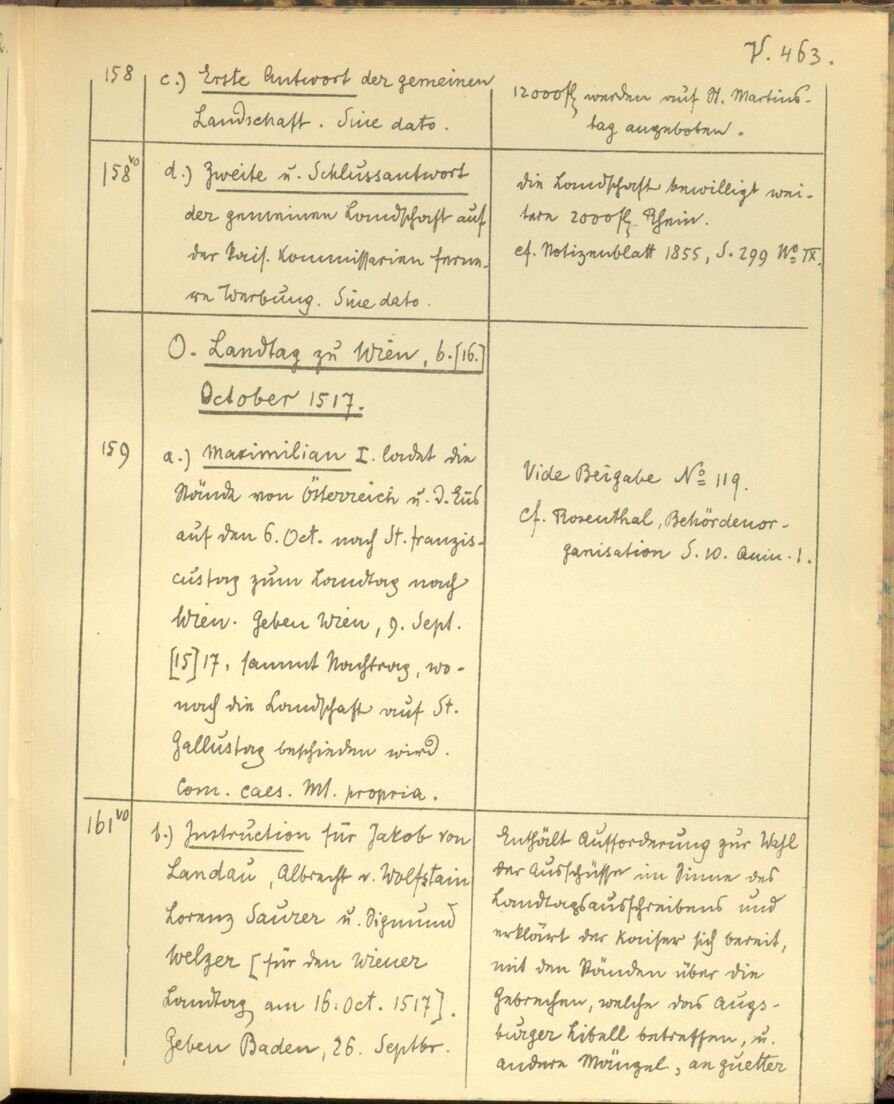 V. 463.
158
c.) Erste Antwort der gemeinen
Landschaft. Sine dato.
12000 fl. werden auf St. Martins-
tag angeboten.
158vo
d.) Zweite u. Schlussantwort
der gemeinen Landschaft auf
der kais. Kommissarien ferne-
re Werbung. Sine dato.
die Landschaft bewilligt wei-
tere 2000 fl. Rhein.
cf. Notizenblatt 1855, S. 299 No IX.
O. Landtag zu Wien, 6. [16.]
October 1517.
159
a.) Maximilian I. ladet die
Stände von Österreich u. d. Ens
auf den 6. Oct. nach St. Franzis-
custag zum Landtag nach
Wien. Geben Wien, 9. Sept.
[15]17, sammt Nachtrag, wo-
nach die Landschaft auf St.
Gallustag beschieden wird.
Com. caes. Mt. propria.
Vide Beigabe No 119.
cf. Rosenthal, Behördenor-
ganisation S. 10. Anm. 1.
161vo
b.) Instruction für Jakob von
Landau, Albrecht v. Wolfstain
Lorenz Saurer u. Sigmund
Welzer [für den Wiener
Landtag am 16. Oct. 1517].
Geben Baden, 26. Septbr.
Enthält Aufforderung zur Wahl
der Ausschüsse im Sinne des
Landtagsausschreibens und
erklärt der Kaiser sich bereit,
mit den Ständen über die
Gebrechen, welche das Augs-
burger Libell betreffen, u.
andere Mängel, an guetter